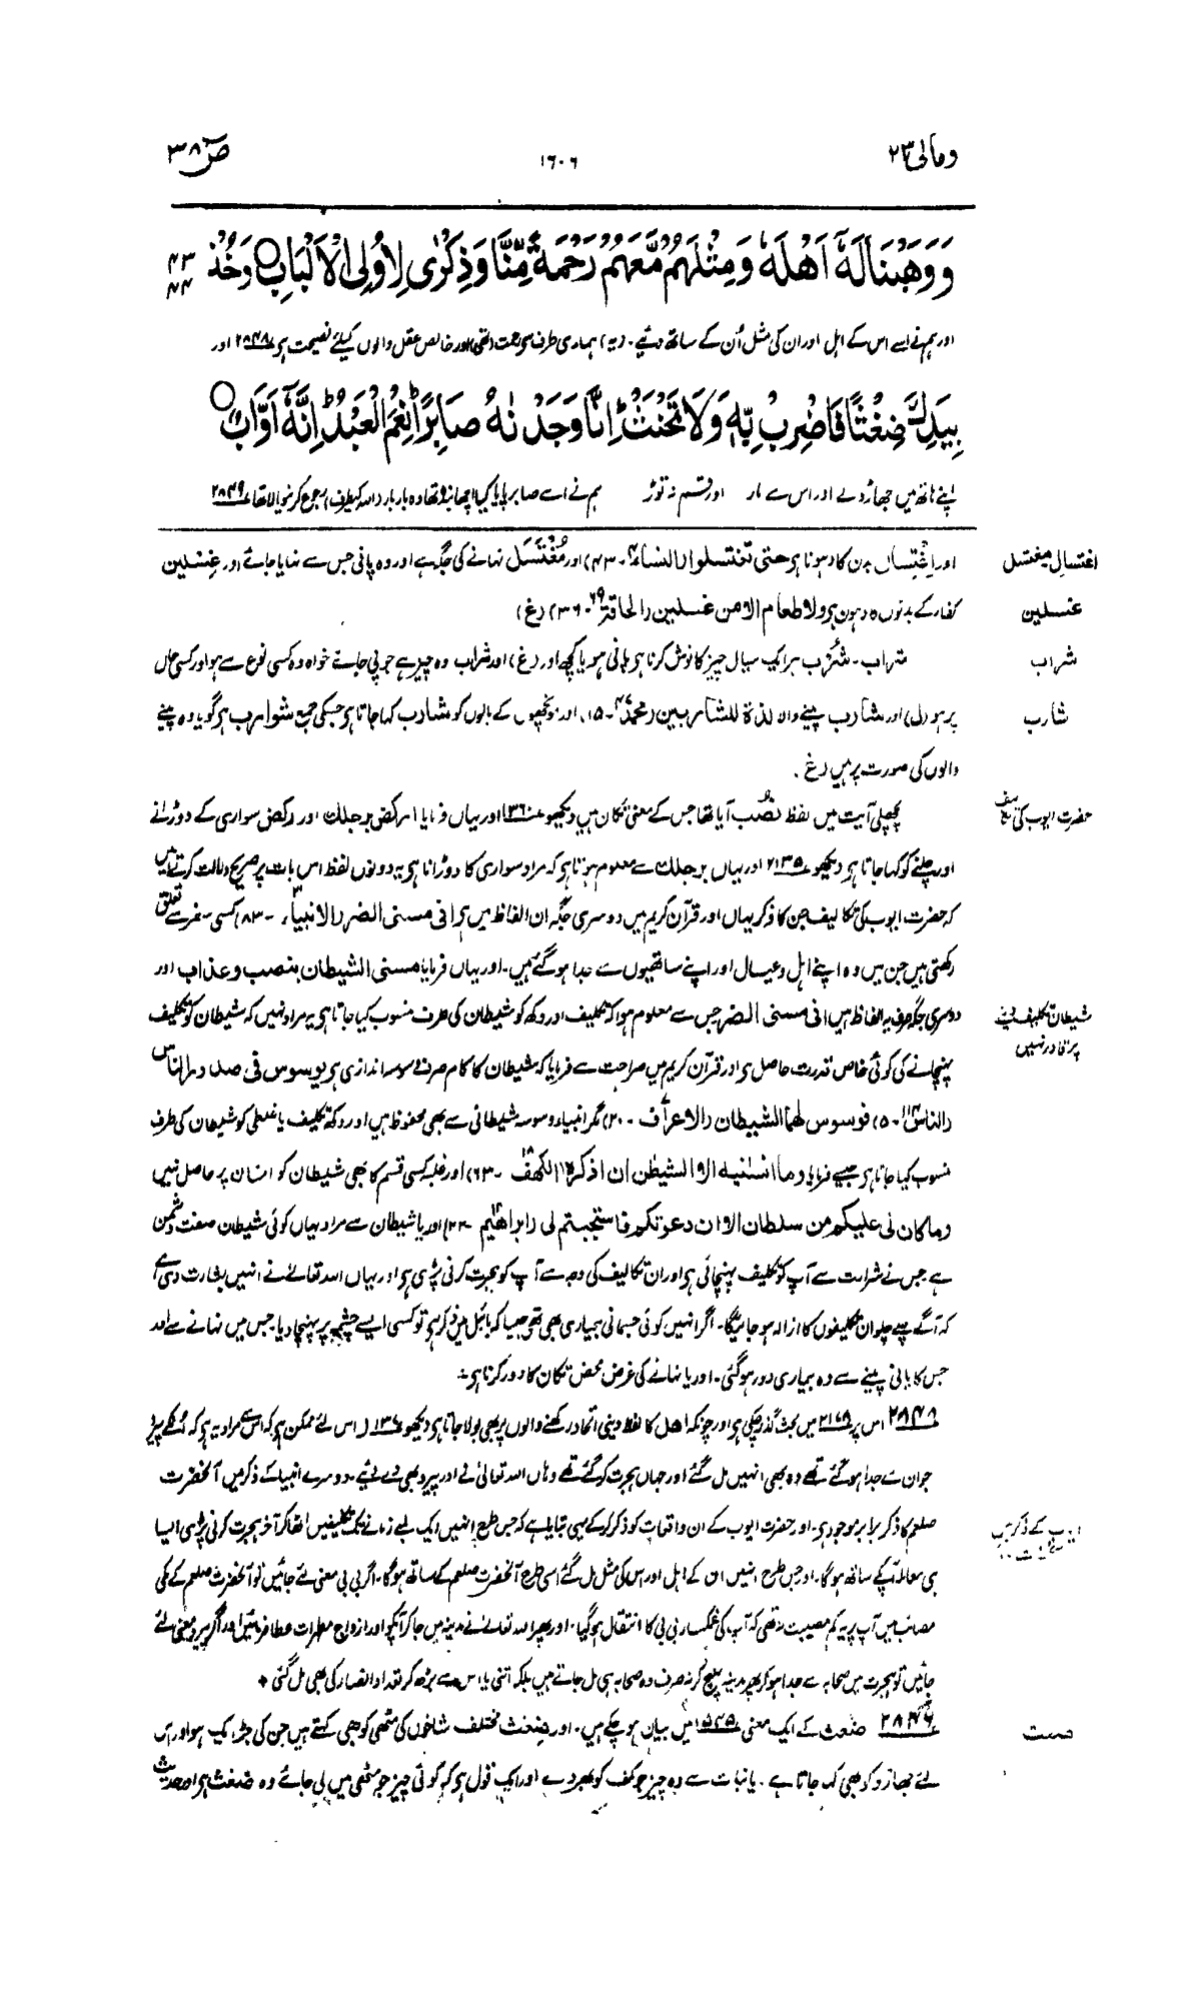 ومالی ۲۳
۱۶۰۶
ص ۳۸
وَوَهَبْنَا لَهٗۤ اَهْلَهٗ وَمِثْلَهُمْ مَّعَهُمْ رَحْمَةً مِّنَّا وَذِكْرٰى لِاُولِى الْاَلْبَابِ ○ وَخُذْ
۴۳
۴۴
اور ہم نے اسے اس کے اہل اور ان کی مثل اُن کے ساتھ دیئے۔ (یہ) ہماری طرف سے رحمت (تھی) اور خالص عقل والوں کیلئے نصیحت ہے ۲۸۴۸ اور
بِيَدِكَ ضِغْثًا فَاضْرِبْ بِّهٖ وَلَا تَحْنَثْ ؕ اِنَّا وَجَدْنٰهُ صَابِرًا ؕ نِعْمَ الْعَبْدُ ؕ اِنَّهٗۤ اَوَّابٌ ○
اپنے ہاتھ میں جھاڑو لے اور اس سے مار اور قسم نہ توڑ ہم نے اسے صابر پایا کیا اچھا بندہ تھا وہ بار بار (اللہ کیطرف) رجوع کرنیوالا تھا ۲۸۴۹
اغتسال مغتسل
اور اِغْتِسال بدن کا دھونا ہے حتی تغتسلوا (النساء ۴۔ ۴۳) اور مُغْتَسَل نہانے کی جگہ ہے اور وہ پانی جس سے نہایا جائے اور غِسْلین
غسلین
کفار کے بدنوں کا دھوون ہے ولا طعام الا من غسلین (الحاقۃ ۶۹۔ ۳۶) (غ)
شراب
شراب۔ شُرْب ہر ایک سیال چیز کا نوش کرنا ہے پانی ہو یا کچھ اور (غ) اور شراب وہ چیز ہے جو پی جائے خواہ وہ کسی نوع سے ہو اور کسی حال
شارب
پر ہو (ل) اور شارب پینے والا لذۃ للشاربین (محمد ۴۷۔ ۱۵) اور مونچھوں کے بالوں کو شارب کہا جاتا ہے جسکی جمع شوارب ہے گویا وہ پینے
والوں کی صورت پر ہیں (غ)۔
حضرت ایوب کی
پچھلی آیت میں لفظ نُصْب آیا تھا جس کے معنی تکان ہیں دیکھو ۱۳۶۰ اور یہاں فرمایا ارکض برجلك اور رکض سواری کے دوڑانے
اور چلنے کو کہا جاتا ہے دیکھو ۲۱۳۵ اور یہاں برجلك سے معلوم ہوتا ہے کہ مراد سواری کا دوڑانا ہے یہ دونوں لفظ اس بات پر صریح دلالت کرتے ہیں
کہ حضرت ایوب کی تکالیف جن کا ذکر یہاں اور قرآن کریم میں دوسری جگہ ان الفاظ میں ہے انی مسنی الضر (الانبیاء۔ ۸۳) کسی سفر سے تعلق
رکھتی ہیں جن میں وہ اپنے اہل و عیال اور اپنے ساتھیوں سے جدا ہو گئے ہیں۔ اور یہاں فرمایا مسنی الشیطان بنصب وعذاب اور
شیطان تکلیف دینے
پر قادر نہیں
دوسری جگہ صرف یہ الفاظ ہیں انی مسنی الضر جس سے معلوم ہوا کہ تکلیف اور دکھ کو شیطان کی طرف منسوب کیا جاتا ہے یہ مراد نہیں کہ شیطان کو تکلیف
پہنچانے کی کوئی خاص قدرت حاصل ہے اور قرآن کریم میں صراحت سے فرمایا کہ شیطان کا کام صرف وسوسہ اندازی ہے یوسوس فی صدور الناس
(الناس ۱۱۴۔ ۵) فوسوس لھما الشیطان (الاعراف۔ ۲۰) مگر انبیاء وسوسہ شیطانی سے بھی محفوظ ہیں اور دکھ تکلیف یا غلطی کو شیطان کی طرف
منسوب کیا جاتا ہے جیسے فرمایا وما انسنیه الا الشیطن ان اذکرہ (الکھف ۱۸۔ ۶۳) اور غلبہ کسی قسم کا بھی شیطان کو انسان پر حاصل نہیں
وما کان لی علیکم من سلطان الا ان دعوتکم فاستجبتم لی (ابراھیم۔ ۲۲) اور یا شیطان سے مراد یہاں کوئی شیطان صفت دشمن
ہے جس نے شرارت سے آپ کو تکلیف پہنچائی ہے اور ان تکالیف کی وجہ سے آپ کو ہجرت کرنی پڑی ہے اور یہاں اللہ تعالےٰ نے انہیں بشارت دی ہے
کہ آگے چلو ان تکلیفوں کا ازالہ ہو جائیگا۔ اگر انہیں کوئی جسمانی بیماری بھی تھی جیسا کہ بائبل میں ذکر ہے تو کسی ایسے چشمہ پر پہنچا دیا جس میں نہانے سے اور
جس کا پانی پینے سے وہ بیماری دور ہو گئی۔ اور یا نہانے کی غرض محض تکان کا دور کرنا ہے ÷
۲۸۴۸ اس پر ۲۱۷۸ میں بحث گذر چکی ہے اور چونکہ اھل کا لفظ دینی اتحاد رکھنے والوں پر بھی بولا جاتا ہے دیکھو اس لئے ممکن ہے کہ اس سے مراد یہ ہے کہ
جو ان سے جدا ہو گئے تھے وہ بھی انہیں مل گئے اور جہاں ہجرت کر گئے تھے وہاں اللہ تعالیٰ نے اور پیرو بھی دے دیئے۔ دوسرے انبیا کے ذکر میں آنحضرت
ایوب کے ذکر میں
صلعم کا ذکر برابر موجود ہے۔ اور حضرت ایوب کے ان واقعات کو ذکر کر کے یہی بتایا ہے کہ جس طرح انہیں ایک لمبے زمانے تک تکلیفیں اٹھا کر آخر ہجرت کرنی پڑی ایسا
ہی معاملہ آپکے ساتھ ہو گا۔ اور جس طرح انہیں ان کے اہل اور اس کی مثل مل گئے اسی طرح آنحضرت صلعم کے ساتھ ہو گا۔ اگر بی بی معنی لئے جائیں تو آنحضرت صلعم کے مکی
مصائب میں آپ پر یہ کم مصیبت نہ تھی کہ آپ کی غمگسار بی بی کا انتقال ہو گیا۔ اور پھر اللہ تعالےٰ نے مدینہ میں جا کر آپکو اور ازواج مطہرات عطا فرمائیں اور اگر پیرو معنی لئے
جائیں تو ہجرت میں صحابہ سے جدا ہو کر پھر مدینہ پہنچ کر نہ صرف وہ صحابہ ہی مل جاتے ہیں بلکہ اتنی یا اس سے بڑھ کر تعداد انصار کی بھی مل گئی ÷
۲۸۴۹ ضغث کے ایک معنی ۱۵۴۵ میں بیان ہو چکے ہیں۔ اور ضِغْث مختلف شاخوں کی مٹھی کو بھی کہتے ہیں جن کی جڑ ایک ہو اور اس
لئے جھاڑو کو بھی کہا جاتا ہے۔ یا نبات سے وہ چیز جو کف کو بھر دے اور ایک قول ہے کہ کوئی چیز جو مٹھی میں لی جائے وہ ضغث ہے اور حدیث